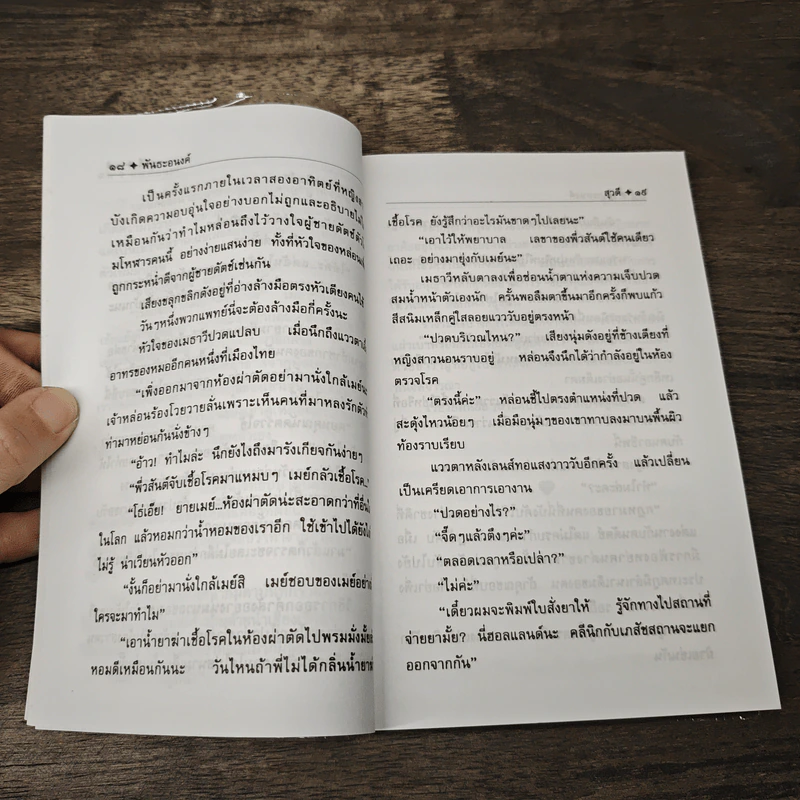 ๑๘ ✦ พันธะอนงค์
เป็นครั้งแรกภายในเวลาสองอาทิตย์ที่หญิงส
บังเกิดความอบอุ่นใจอย่างบอกไม่ถูกและอธิบายไม่ไ
เหมือนกันว่าทำไมหล่อนถึงไว้วางใจผู้ชายดัตช์ตัว
มโหฬารคนนี้ อย่างง่ายแสนง่าย ทั้งที่หัวใจของหล่อน
ถูกกระหน่ำตีจากผู้ชายดัตช์เช่นกัน
เสียงขลุกขลิกดังอยู่ที่อ่างล้างมือตรงหัวเตียงคนไข้
วันๆหนึ่งพวกแพทย์นี่จะต้องล้างมือกี่ครั้งนะ
หัวใจของเมธาวีปวดแปลบ เมื่อนึกถึงแววตา
อาทรของหมออีกคนหนึ่งที่เมืองไทย
“เพิ่งออกมาจากห้องผ่าตัดอย่ามานั่งใกล้เมย์นะ
เจ้าหล่อนร้องโวยวายลั่นเพราะเห็นคนที่มาหลงรักตัว
ทำมาหย่อนก้นนั่งข้างๆ
“อ้าว! ทำไมล่ะ นึกยังไงถึงมารังเกียจกันง่ายๆ
“พี่วสันต์จับเชื้อโรคมาแหมบๆ เมย์กลัวเชื้อโรค..”
“โธ่เอ๊ย! ยายเมย์...ห้องผ่าตัดน่ะสะอาดกว่าที่อื่น
ในโลก แล้วหอมกว่าน้ำหอมของเราอีก ใช้เข้าไปได้ยังไ
ไม่รู้ น่าเวียนหัวออก”
“งั้นก็อย่ามานั่งใกล้เมย์สิ เมย์ชอบของเมย์อย่าง
ใครจะมาทำไม”
“เอาน้ำยาฆ่าเชื้อโรคในห้องผ่าตัดไปพรมมั่งมั้ย
หอมดีเหมือนกันนะ วันไหนถ้าพี่ไม่ได้กลิ่นน้ำยา
สุวดี ✦ ๑๙
เชื้อโรค ยังรู้สึกว่าอะไรมันขาดๆไปเลยนะ”
“เอาไว้ให้พยาบาล เลขาของพี่วสันต์ใช้คนเดียว
เถอะ อย่ามายุ่งกับเมย์นะ”
เมธาวีหลับตาลงเพื่อซ่อนน้ำตาแห่งความเจ็บปวด
สมน้ำหน้าตัวเองนัก ครั้นพอลืมตาขึ้นมาอีกครั้งก็พบแก้ว
สีสนิมเหล็กคู่ใสลอยแวววับอยู่ตรงหน้า
“ปวดบริเวณไหน?” เสียงนุ่มดังอยู่ที่ข้างเตียงที่
หญิงสาวนอนราบอยู่ หล่อนจึงนึกได้ว่ากำลังอยู่ในห้อง
ตรวจโรค
“ตรงนี้ค่ะ” หล่อนชี้ไปตรงตำแหน่งที่ปวด แล้ว
สะดุ้งไหวน้อยๆ เมื่อมือนุ่มๆของเขาทาบลงมาบนพื้นผิว
ท้องราบเรียบ
แววตาหลังเลนส์ทอแสงวาววับอีกครั้ง แล้วเปลี่ยน
เป็นเครียดเอาการเอางาน
“ปวดอย่างไร?”
“จี๊ดๆแล้วตึงๆค่ะ”
“ตลอดเวลาหรือเปล่า?”
“ไม่ค่ะ”
“เดี๋ยวผมจะพิมพ์ใบสั่งยาให้ รู้จักทางไปสถานที่
จ่ายยามั้ย? นี่ฮอลแลนด์นะ คลีนิกกับเภสัชสถานจะแยก
ออกจากกัน”